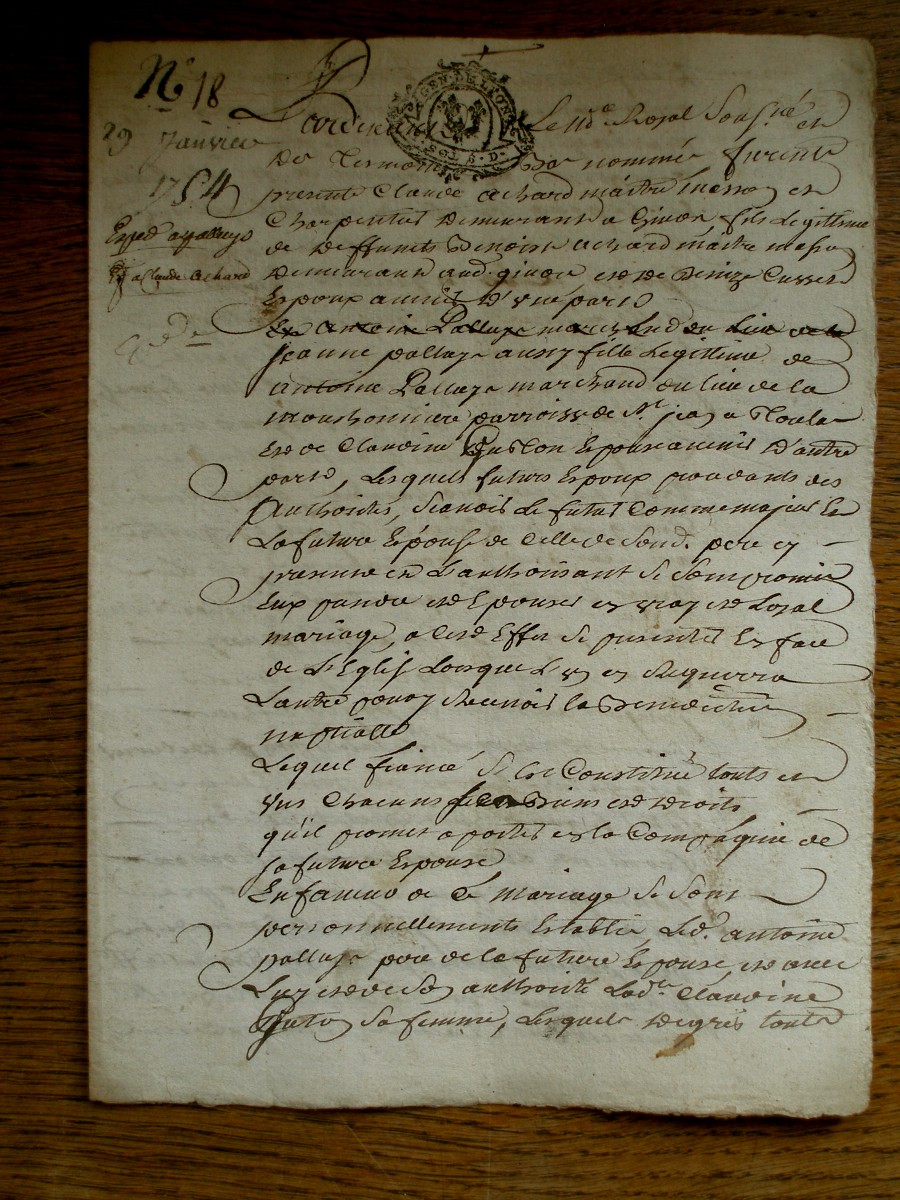 N.° 18
29 Janvier
1754
Exped. a pallaye
Ex a Claude achard
GEN. DE LYON
SOLS D.
Pardevant Le nore. Royal Sousné. et
Des Termoins Bas nommés furents
presents Claude achard maitre masson et
Charpentier Demeurant a Givor fils Legittime
de Deffunts Benoist achard maitre masson
Demeurant aud. givor et de Denize
Epoux a venir D'Une part
Et Antoine Pallaye marchand du Lieu de la
Jeanne pallaye aussy fille Legittime de
Antoine Pallaye marchand du lieu de la
parroisse de St. jean a Toulas
et de Claudine Guston Epouse a venir D'autre
part, Lesquels futurs Epoux procedants des
Authorites, Scavoir Le futur Comme majeur Et
La future Epouse de Celle de Sond. pere cy
presents et L'authorisant Se Sont promis
Eux prendre et Epouser en vray et Loyal
mariage, a cet Effet Se presenter En face
de L'Eglise Lorsque L'un en Requerra
L'autre pour y Recevoir la Benediction
nuptialle
Lequel fiancé Se Constitué touts et
Uns Chacuns Ses Biens et Droits
qu'il promet aporter en la Compagnie de
sa future Epouse
En faveur de Ce mariage Se Sont
personnellements Establis Led. antoine
pallaye pere de la future Epouse, et avec
Luy et de Son authorité Lade. Claudine
Guston Sa femme, Lesquels De gres touts